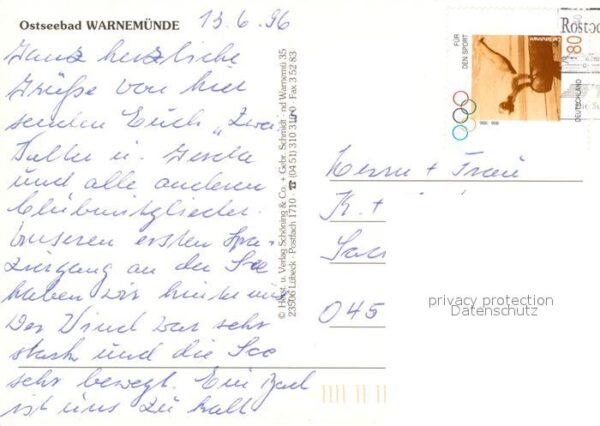 Ostseebad WARNEMÜNDE
13.6.96
Ganz herzliche
Grüße von hier
senden Euch „Zwei
u. Gerda
und alle anderen
Clubmitglieder.
Unseren ersten Spa-
ziergang an der See
haben wir hinter uns
Der Wind war sehr
stark und die See
sehr bewegt. Ein Bad
ist uns zu kalt
© Horst. u. Verlag Schöning & Co. + Gebr. Schmidt · und Warnemü 35
23506 Lübeck · Postfach 1710 ☎ (04 51) 310 3 · Fax 3 52 83
FÜR
DEN SPORT
80
DEUTSCHLAND
Rostoc
Herrn + Frau
K. +
045
privacy protection
Datenschutz